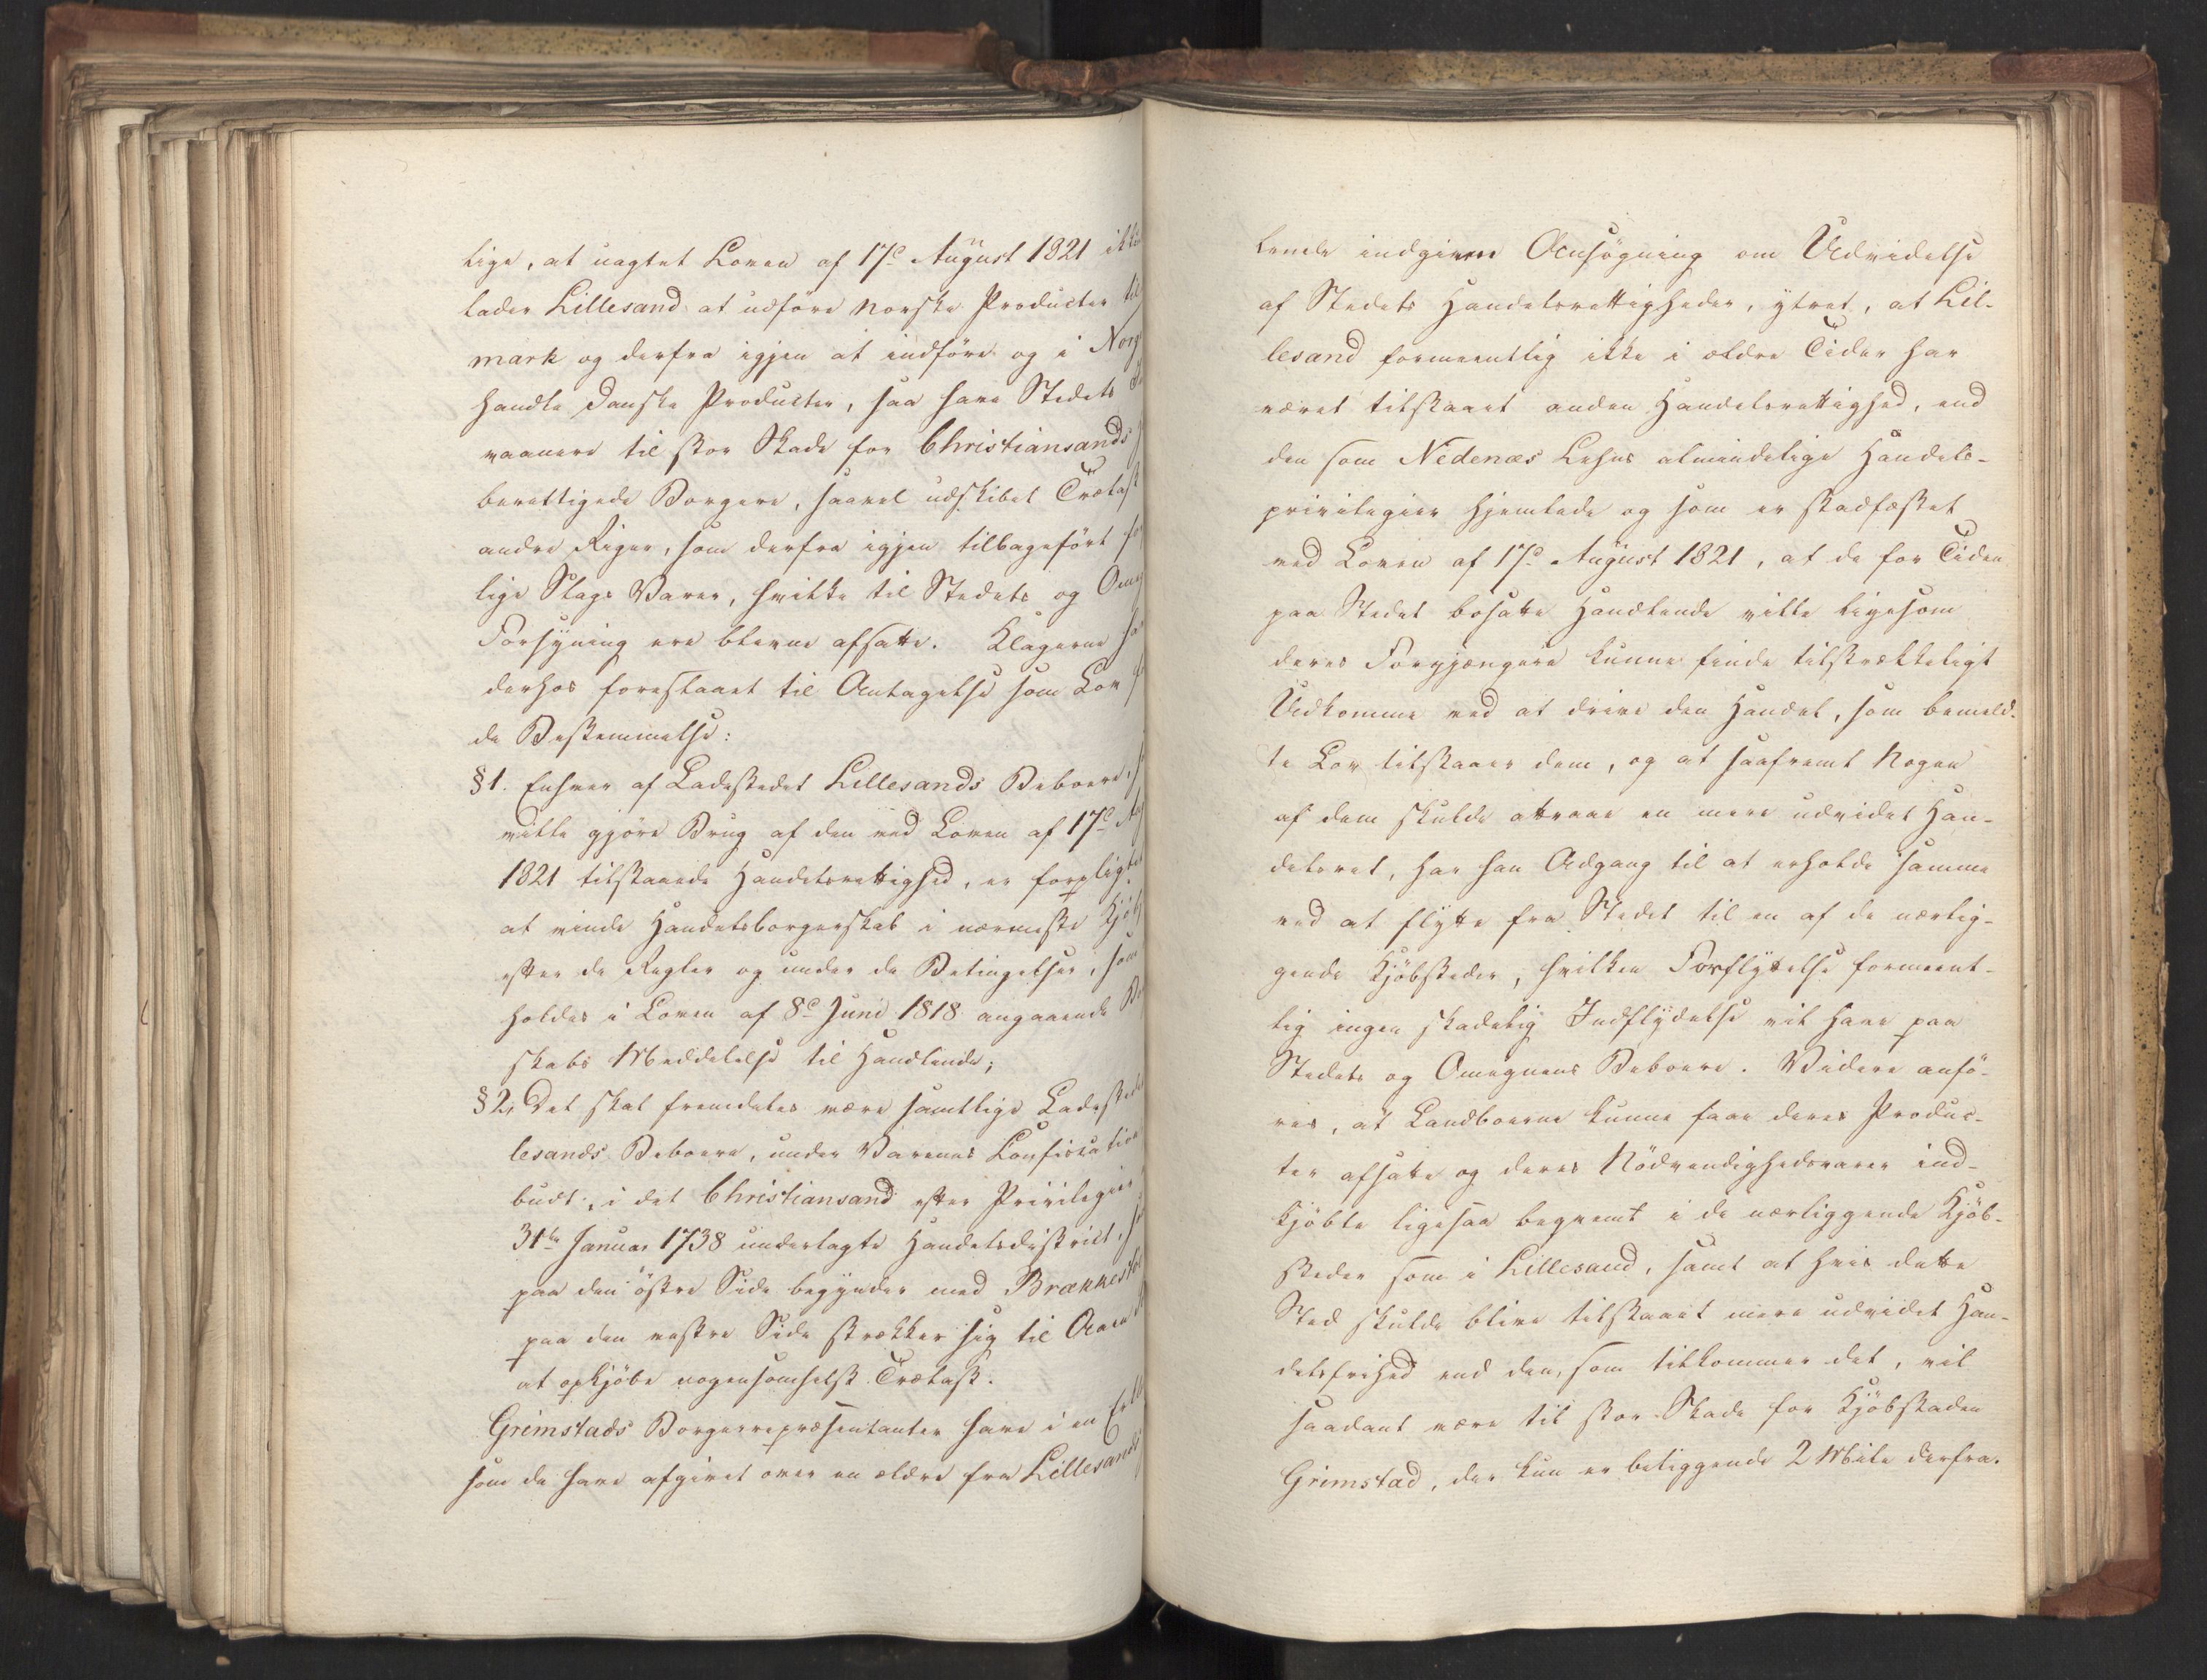 lige, at uagtet Loven af 17de August 1821 ikke
lader Lillesand at udföre norske Producter til
mark og derfra igjen at indföre og i Norg
handle danske Producter, saa have Stedets
vaanere til stor Skade for Christiansands
berettigede Borgere, saavel udskibet Trælast
andre Riger, som derfra igjen tilbageført
lige Slags Varer, hvilke til Stedets og Omeg
Forsyning ere blevne afsatte. Klagerne
derhos foreslaaet til Antagelse som Lov
de Bestemmelse:
§ 1. Enhver af Ladestedet Lillesands Beboere,
vilde gjöre Brug af den ved Loven af 17de Aug
1821 tilstaaede Handelsrettighed, er forpligtet
at vinde Handelsborgerskab i nærmeste Kjöb
efter de Regler og under de Betingelser, som
holdes i Loven af 8de Juni 1818 angaaende
skabs Meddelelse til Handlende;
§ 2, Det skal fremdeles være samtlige Ladestedet
lesands Beboere, under Varernes Confiscation
budt, i det Christiansand efter Privilegier
31te Januar 1738 underlagte Handelsdistrict,
paa den östre Side begynder med Brækkestö
paa den vestre Side strækker sig til
at opkjöbe nogensomhelst Trælast.
Grimstads Borgerrepræsentanter have i en
som de have afgivet over en ældre fra Lillesands
lende indgiven Ansögning om Udvidelse
af Stedets Handelsrettigheder, ytret, at Lil-
lesand formeentlig ikke i ældre Tider har
været tilstaaet anden Handelsrettighed, end
den som Nedenæs Lehns almindelige Handels-
privilegier hjemlede og som er stadfæstet
ved Loven af 17de August 1821, at de for Tiden
paa Stedet bosatte Handlende ville ligesom
deres Forgjængere kunne finde tilstrækkeligt
Udkomme ved at drive den Handel, som bemeld-
te Lov tilstaaer dem, og at saafremt Nogen
af dem skulde attraae en mere udvidet Han-
delsret, har han Adgang til at erholde samme
ved at flytte fra Stedet til en af de nærlig-
gende Kjöbsteder, hvilken Forflyttelse formeent-
lig ingen skadelig Indflydelse vil have paa
Stedets og Omegnens Beboere. Videre anfö-
res, at Landboerne kunne faae deres Produc-
ter afsatte og deres Nödvendighedsvarer ind-
kjöbte ligesaa beqvemt i de nærliggende Kjöb-
steder som i Lillesand, samt at hvis dette
Sted skulde blive tilstaaet mere udvidet Han-
delsfrihed end den, som tilkommer det, vil
saadant være til stor Skade for Kjöbstaden
Grimstad, der kun er beliggende 2 Mile derfra.